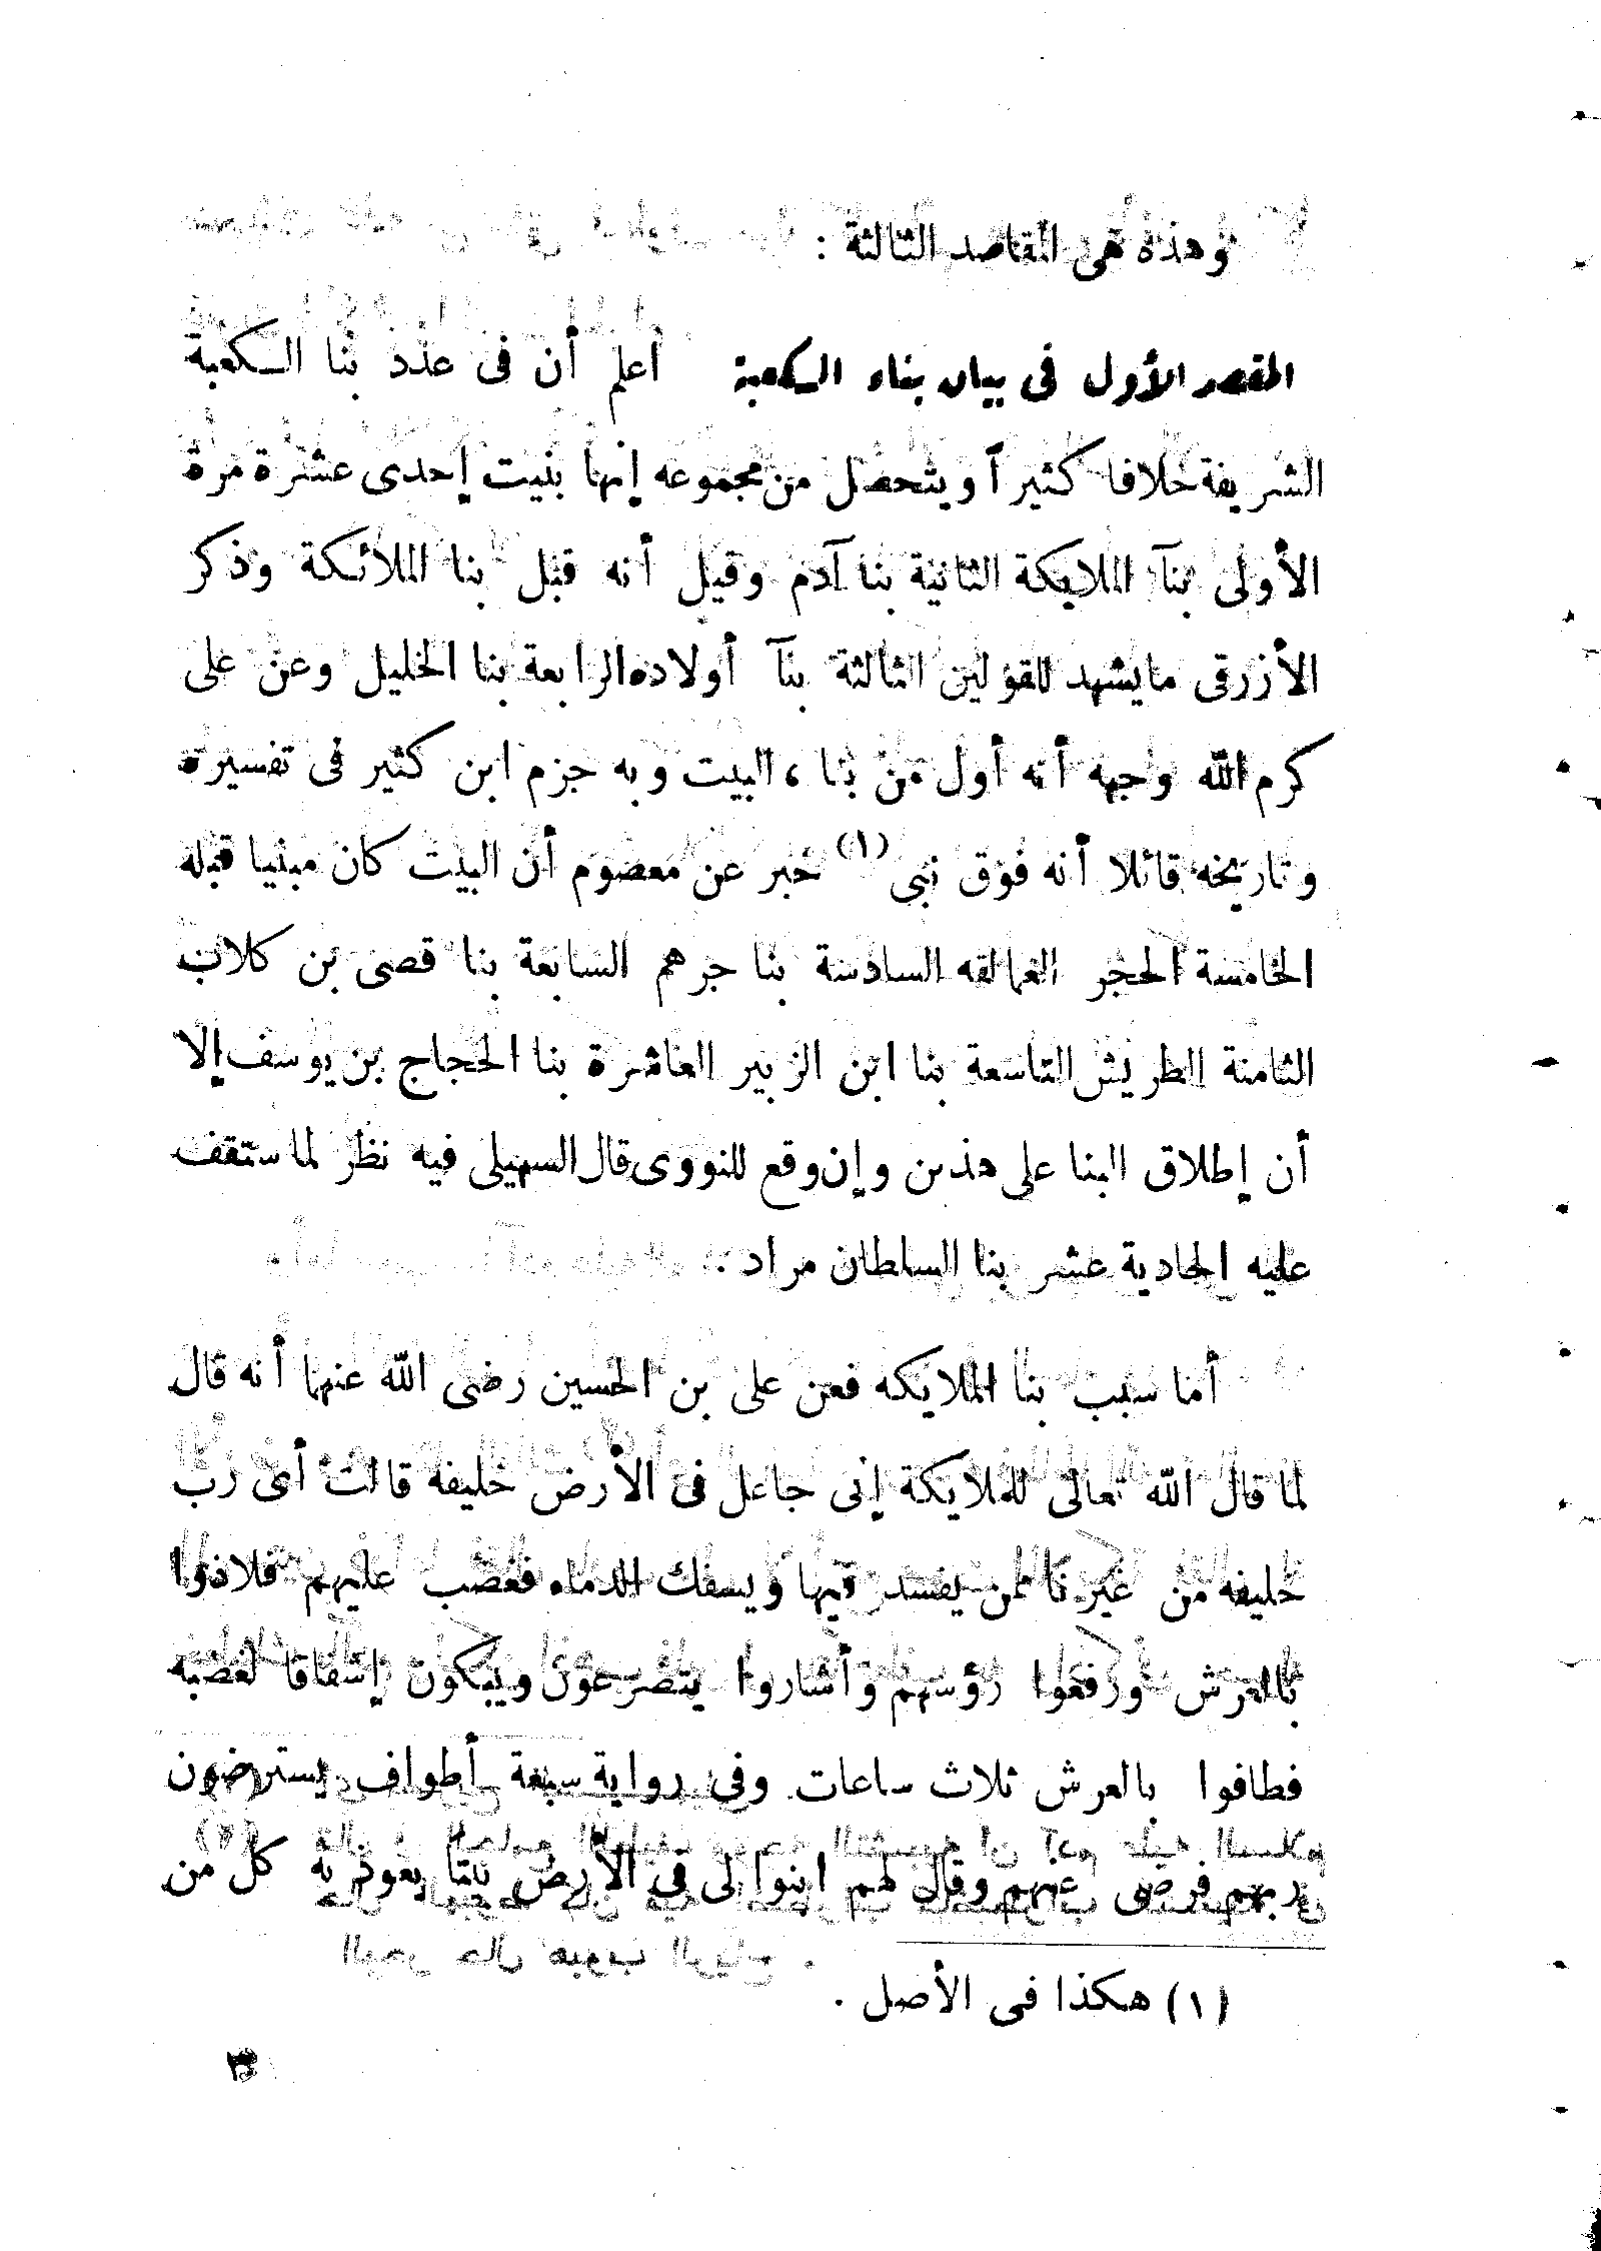 وهذه هى المقاصد الثالثة :
المقصد الأول فى بيان بناء الكعبة    اعلم أن فى عدد بنا الكعبة
الشريفة خلافا كثيراً ويتحصل من مجموعه إنها بنيت إحدى عشرة مرة
الأولى بنآ الملايكة الثانية بنا آدم وقيل أنه قبل بنا الملائكة وذكر
الأزرقى ما يشهد للقولين الثالثة بنآ أولاده الرابعة بنا الخليل وعن على
كرم الله وجهه أنه أول من بنا ، البيت وبه جزم ابن كثير فى تفسيره
وتاريخه قائلا أنه فوق نبى (١) خبر عن معصوم أن البيت كان مبنيا قبله
الخامسة الحجر العمالقه السادسة بنا جرهم السابعة بنا قصى بن كلاب
الثامنة الطريش التاسعة بنا ابن الزبير العاشرة بنا الحجاج بن يوسف إلا
أن إطلاق البنا على هذين وإن وقع للنووى قال السهيلى فيه نظر لما ستقف
عليه الحادية عشر بنا السلطان مراد .
أما سبب بنا الملايكه فعن على بن الحسين رضى الله عنهما أنه قال
لما قال الله تعالى للملايكة إنى جاعل فى الأرض خليفه قالت أى رب
خليفه من غيرنا ممن يفسد فيها ويسفك الدماء فغضب عليهم فلاذوا
بالعرش ورفعوا رؤسهم وأشاروا يتضرعون ويبكون إشفاقا لغضبه
فطافوا بالعرش ثلاث ساعات وفى رواية سبعة أطواف يسترضون
ربهم فرضى عنهم وقال لهم ابنوا لى فى الأرض بيتا يعوذ به كل من
(١) هكذا فى الأصل .